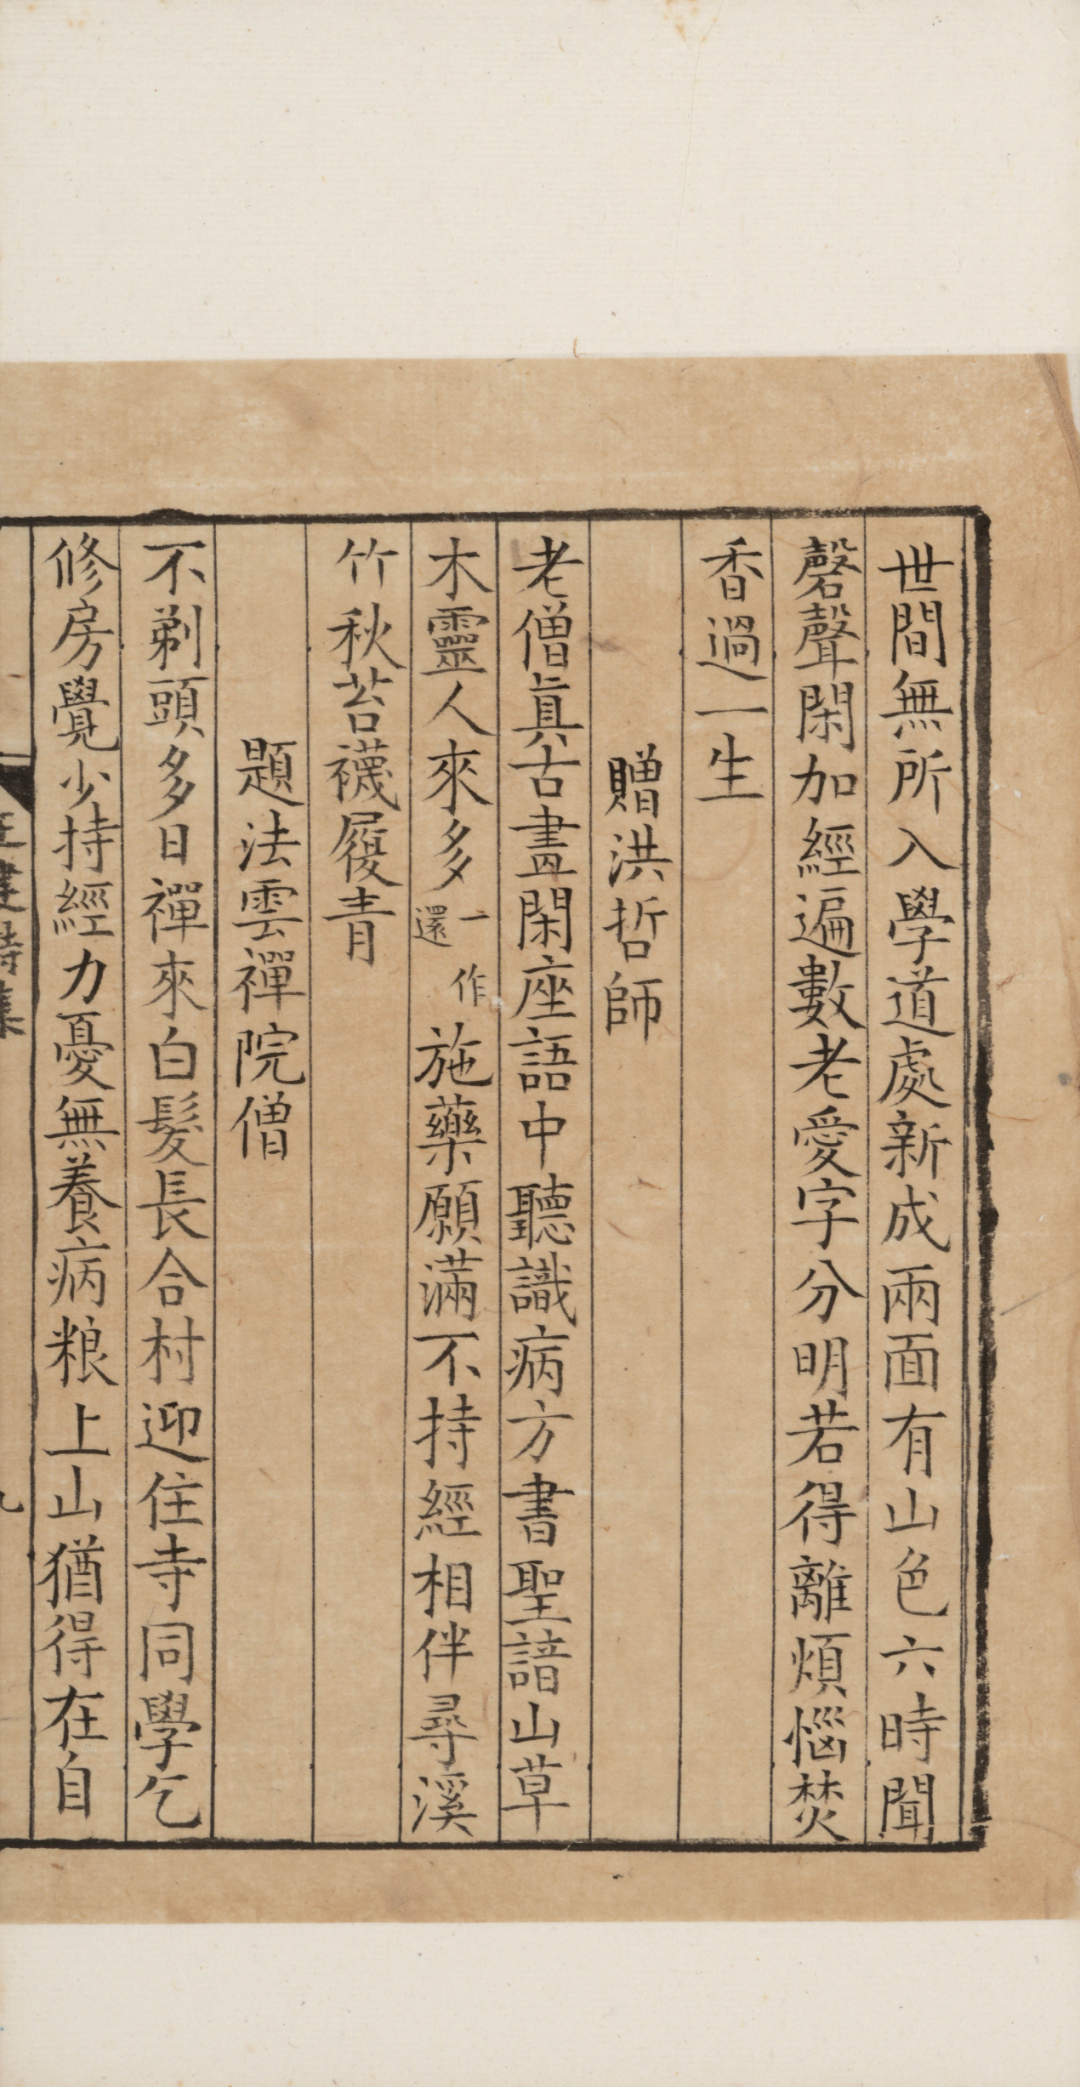 世間無所入學道處新成兩面有山色六時聞
磬聲閑加經遍數老愛字分明若得離煩惱焚
香過一生
贈洪哲師
老僧眞古畫閑座語中聽識病方書聖諳山草
木靈人來多一作還施藥願滿不持經相伴尋溪
竹秋苔襪履青
題法雲禪院僧
不剃頭多日禪來白髮長合村迎住寺同學乞
修房覺少持經力憂無養病粮上山猶得在自
王建詩集
九